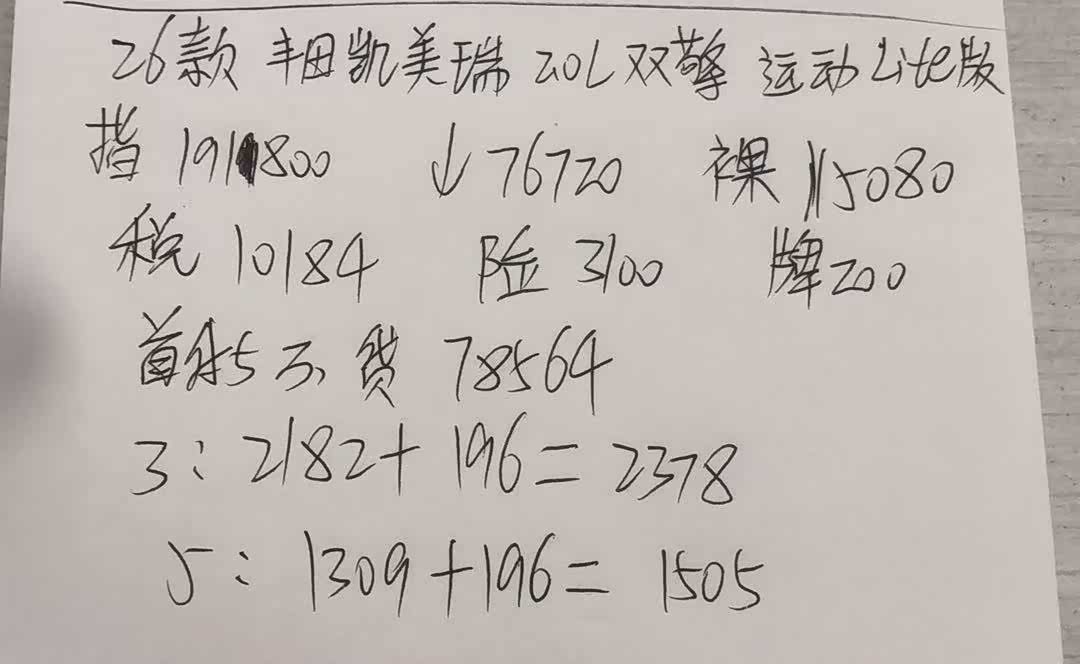 26款 丰田凯美瑞 2.0L双擎 运动Lite版
指 191800 ↓76720 裸 115080
税 10184 险 3100 牌200
首付5万 贷 78564
3: 2182+196=2378
5: 1309+196=1505